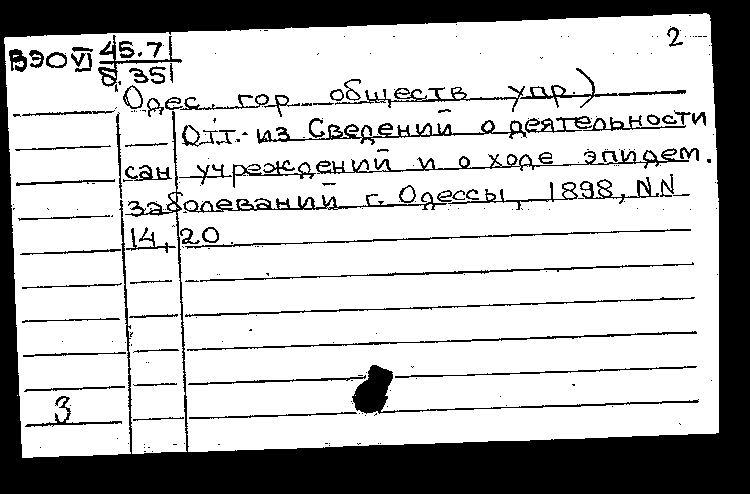 2
ВЭО VI 45.7
8.35
Одес. гор обществ упр.)
Отт.-из Сведений о деятельности
сан учреждений и о ходе эпидем.
заболеваний г. Одессы, 1898, N.N
14, 20.
3